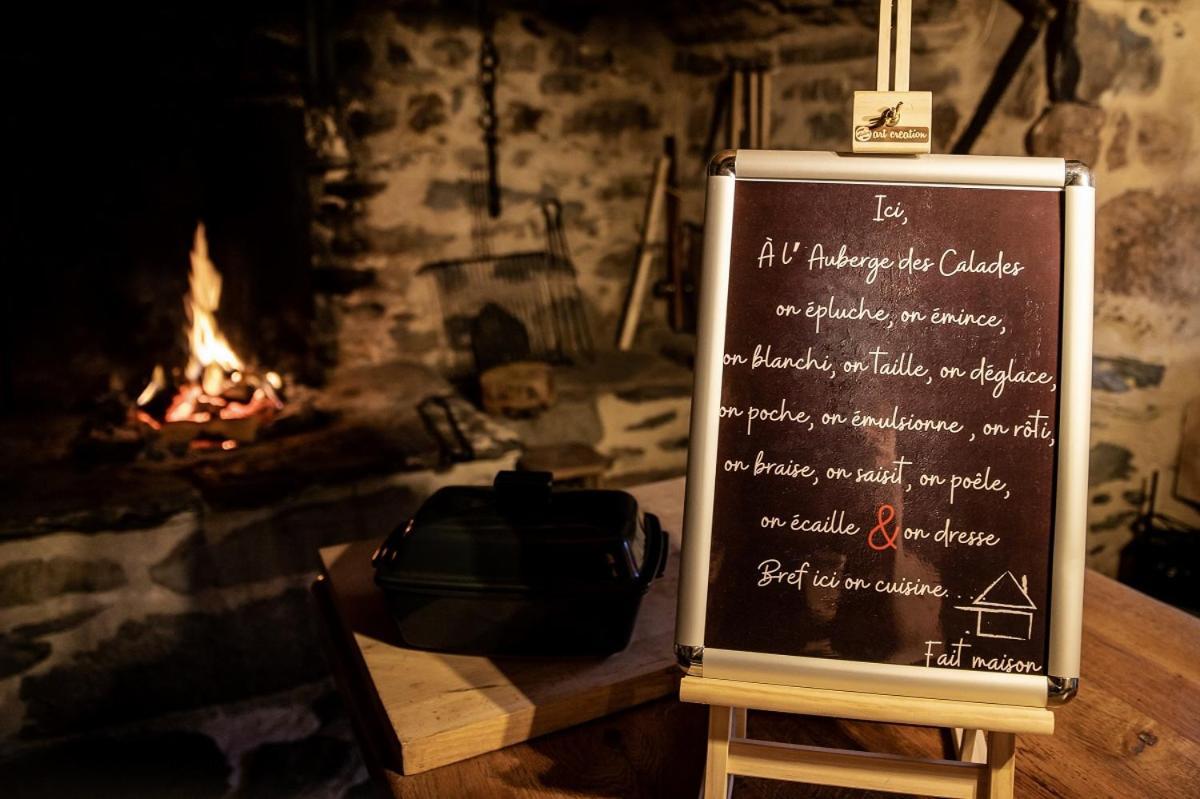 art creation
Ici,
À l' Auberge des Calades
on épluche, on émince,
on blanchi, on taille, on déglace,
on poche, on émulsionne , on rôti,
on braise, on saisit, on poêle,
on écaille & on dresse
Bref ici on cuisine...
Fait maison